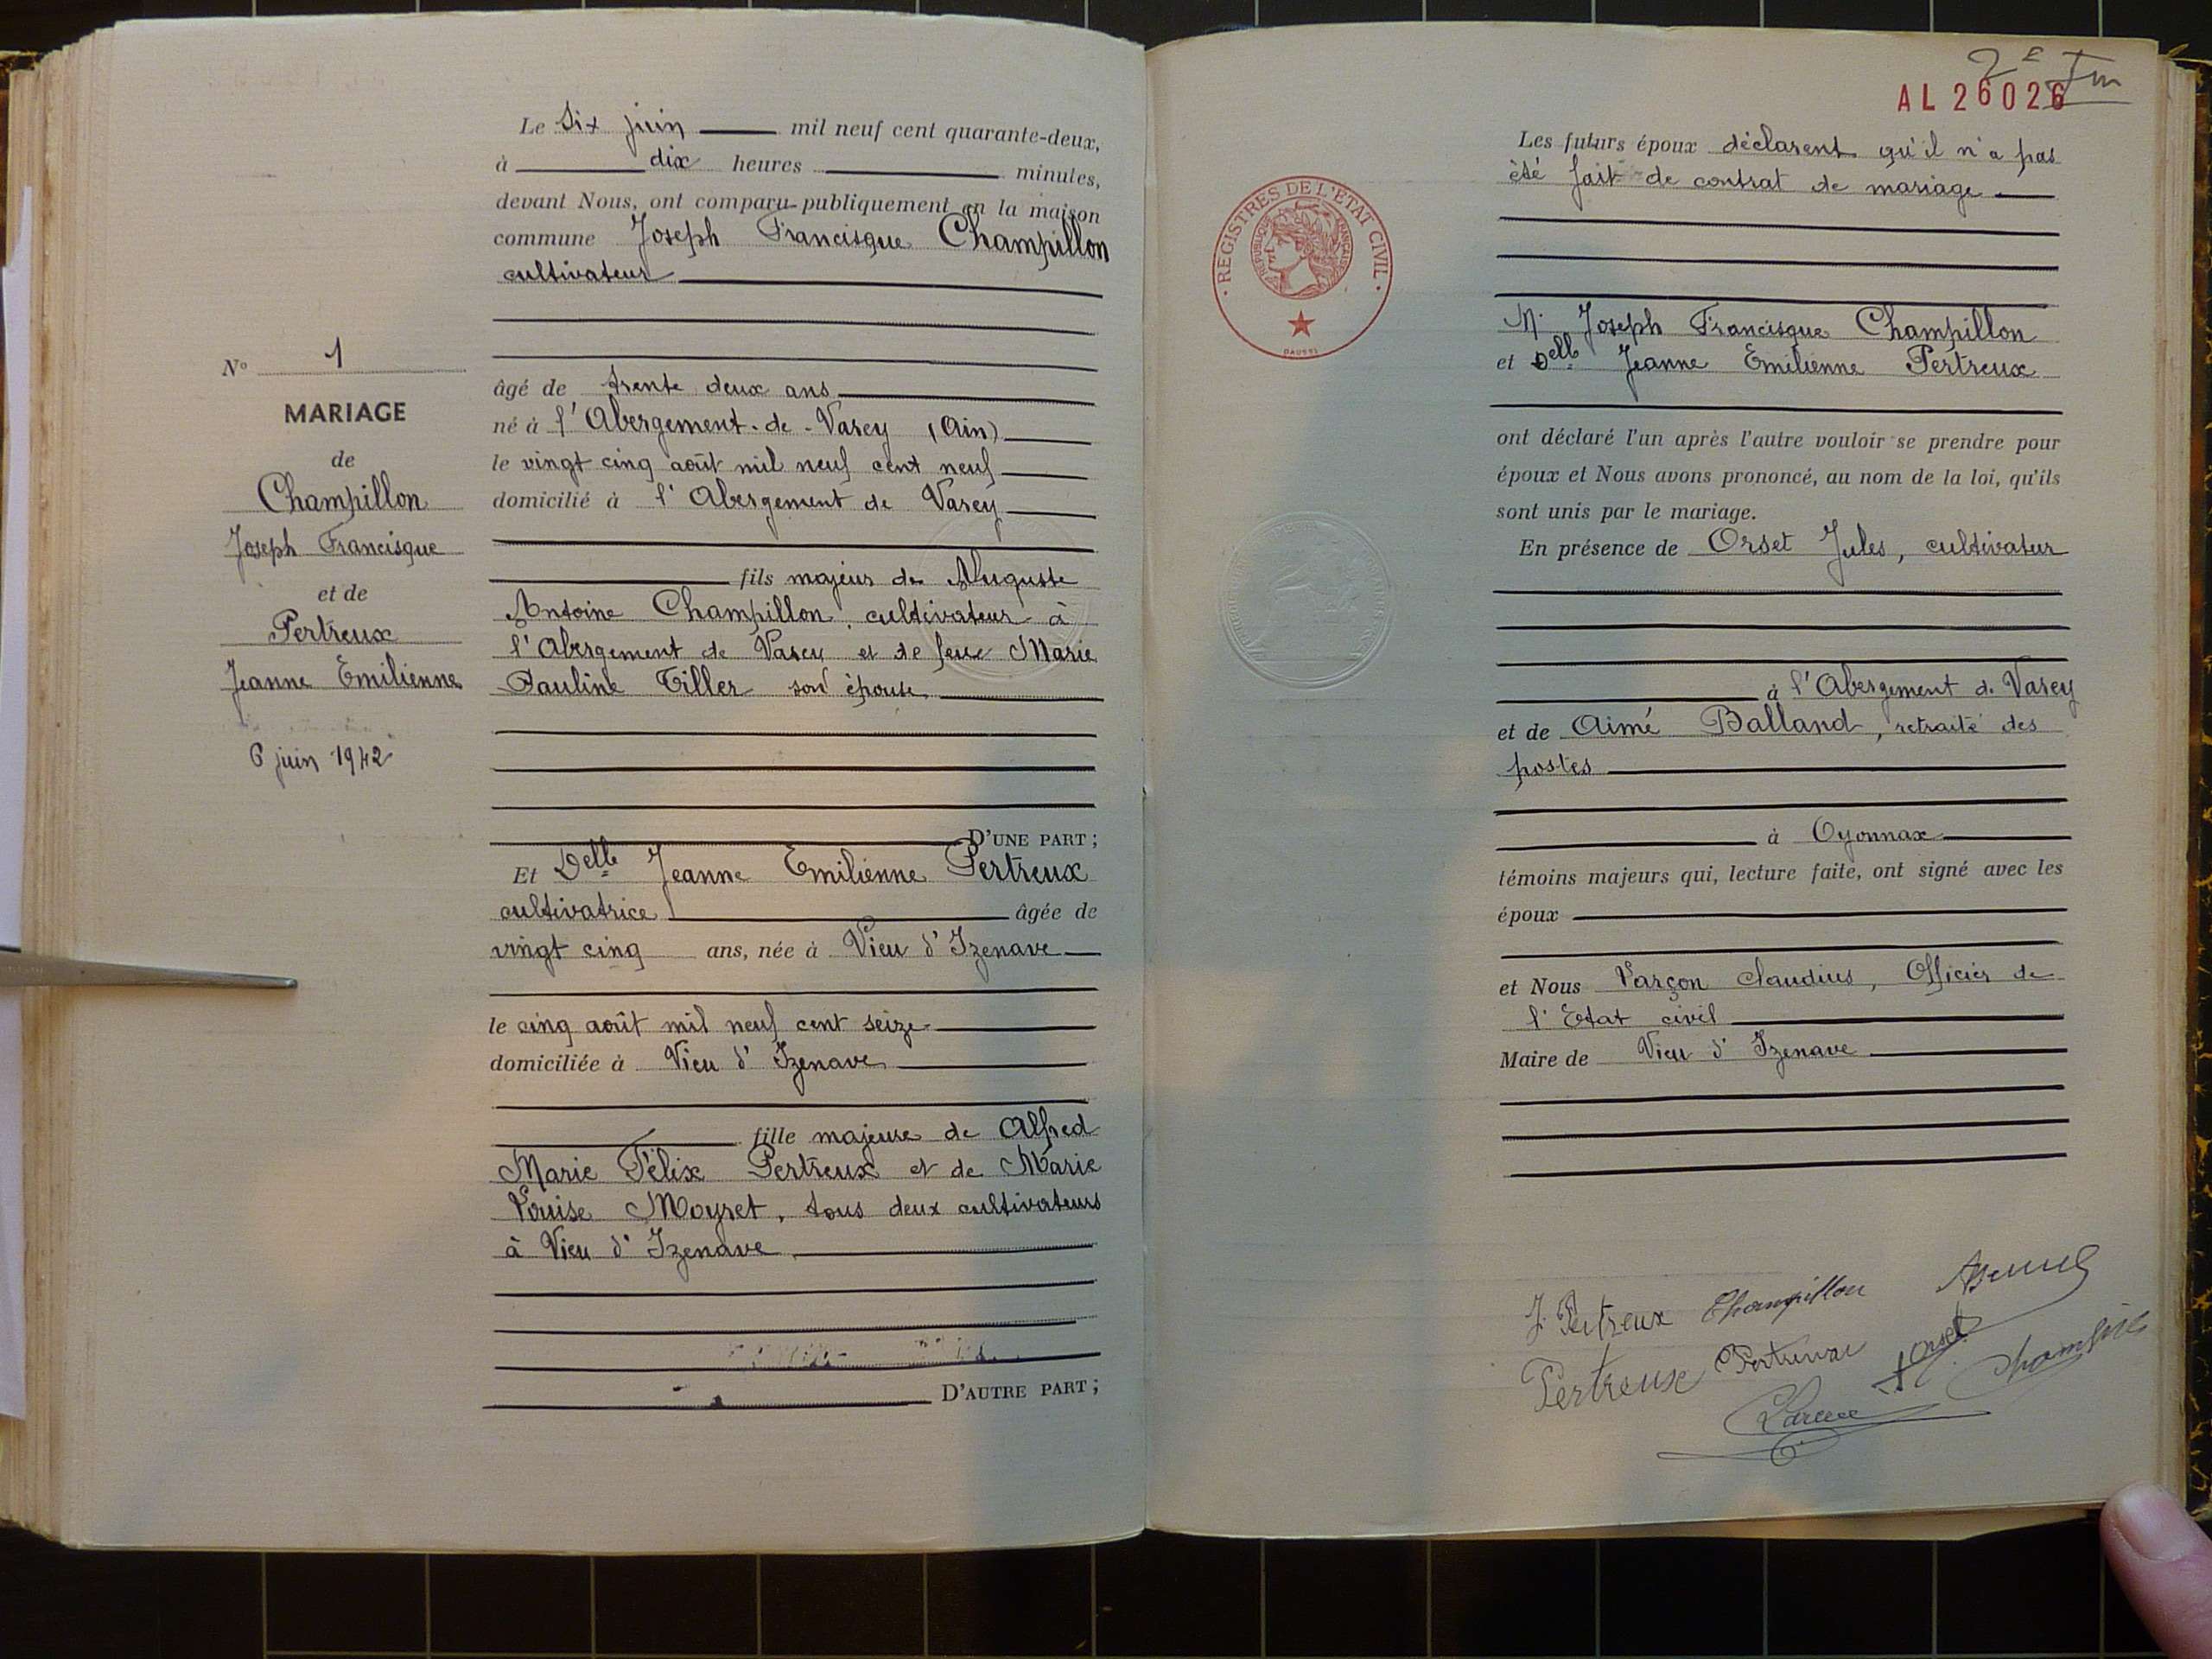 Le Six juin mil neuf cent quarante-deux,
à dix heures minutes,
devant Nous, ont comparu publiquement en la maison
commune Joseph Francisque Champillon
cultivateur
N° 1
MARIAGE
de
Champillon
Joseph Francisque
et de
Pertreux
Jeanne Emilienne
6 juin 1942
âgé de trente deux ans
né à l'Abergement-de-Varey (Ain)
le vingt cinq août mil neuf cent neuf
domicilié à l'Abergement de Varey
fils majeur de Auguste
Antoine Champillon, cultivateur à
l'Abergement de Varey et de feue Marie
Pauline Tiller son épouse
D'UNE PART ;
Et Delle Jeanne Emilienne Pertreux
cultivatrice âgée de
vingt cinq ans, née à Vieu d'Izenave
le cinq août mil neuf cent seize
domiciliée à Vieu d'Izenave
fille majeure de Alfred
Marie Félix Pertreux et de Marie
Louise Moyret, tous deux cultivateurs
à Vieu d'Izenave
D'AUTRE PART ;
2e
AL 26026
REGISTRES DE L'ETAT CIVIL
REPUBLIQUE FRANÇAISE
Les futurs époux déclarent qu'il n'a pas
été fait de contrat de mariage
M. Joseph Francisque Champillon
et Delle Jeanne Emilienne Pertreux
ont déclaré l'un après l'autre vouloir se prendre pour
époux et Nous avons prononcé, au nom de la loi, qu'ils
sont unis par le mariage.
En présence de Orset Jules, cultivateur
à l'Abergement de Varey
et de Aimé Balland, retraité des
postes
à Oyonnax
témoins majeurs qui, lecture faite, ont signé avec les
époux
et Nous Varçon Claudius, Officier de
l'Etat civil
Maire de Vieu d'Izenave
J. Pertreux Champillon
Pertreux Pertreux Orset